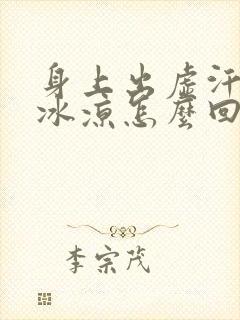 身上出虚汗
冰凉怎麼回
李宗茂